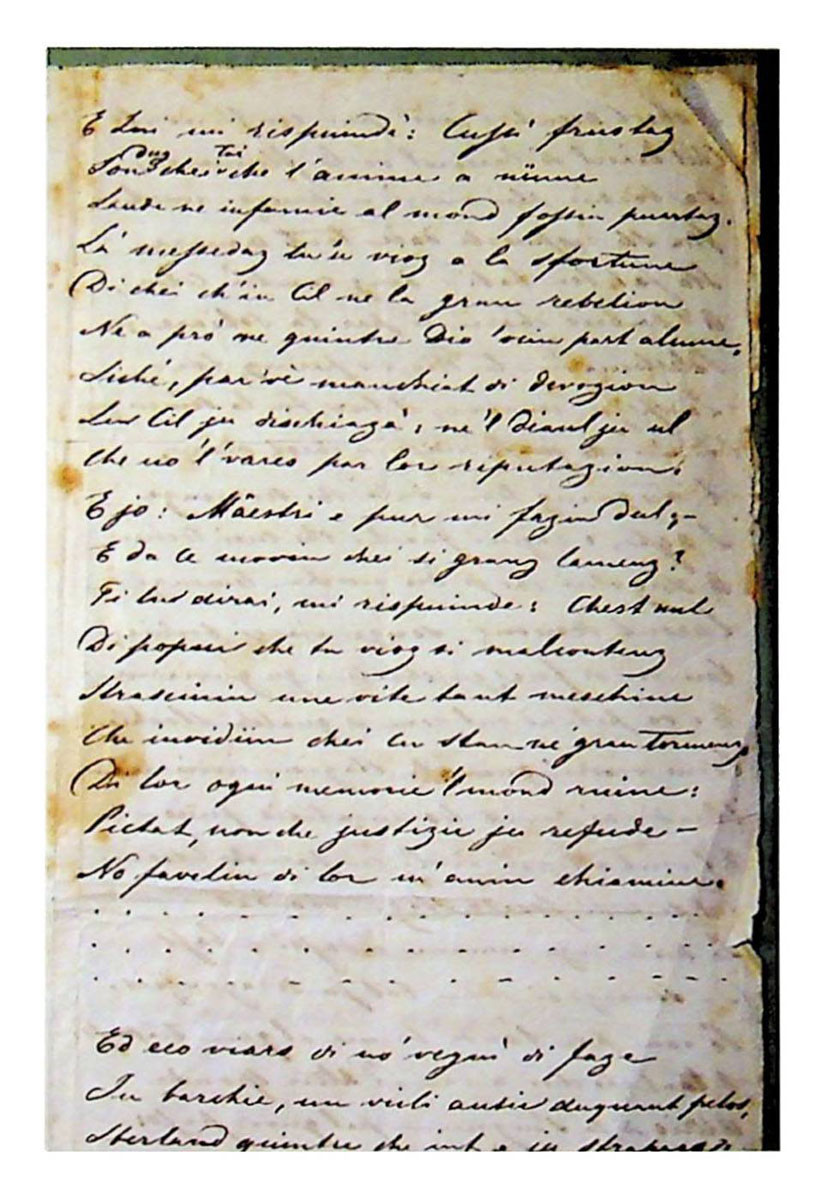 E Lui mi rispuindè: Cussì frustaz
Son dug chei tai che l'anime a nünne
Laude ne infamie al mond fossin puartaz.
Là messedaz tu'u viog a la sfortune
Di chei ch'in Cil ne la gran rebelion
Ne a prò ne quintre Dio 'vein part alcune.
Sichè, par vè manchiat di devozion
Lui Cil ju dischiazà; ne'l diaul ju ul
Che no l'vares par lor riputazion.
E jo: Mâestri e pur mi fazin dul,-
E da ce movin chei si granz lamenz?
Ti lu dirai, mi rispuinde: Chest nul
Di popui che tu viog si malcontenz
Strascinin une vite tant meschine
Che invidiin chei cu stan ne' gran tormenz.
Di lor ogni memorie 'l mond ruine:
Pietat, non che justizie ju refude-
No favelin di lor m'anin chiamine.
. . . . . . . . . . . . . . .
. . . . . . . . . . . . . . .
. . . . . . . . . . . . . . .
Ed eco viars di no' vegnì di faze
In barchie, un vieli antic duquant pelos,
Sterland quintre che int e in